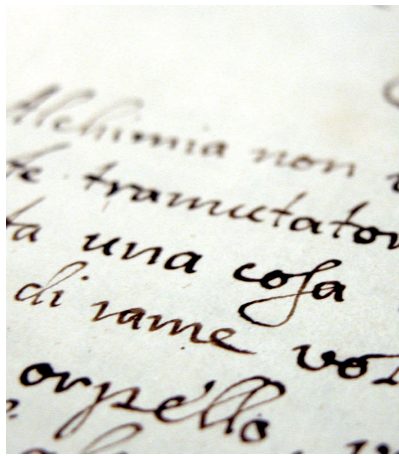 Alchimia non
te tramutator
ta una coſa
di rame vol
orpello